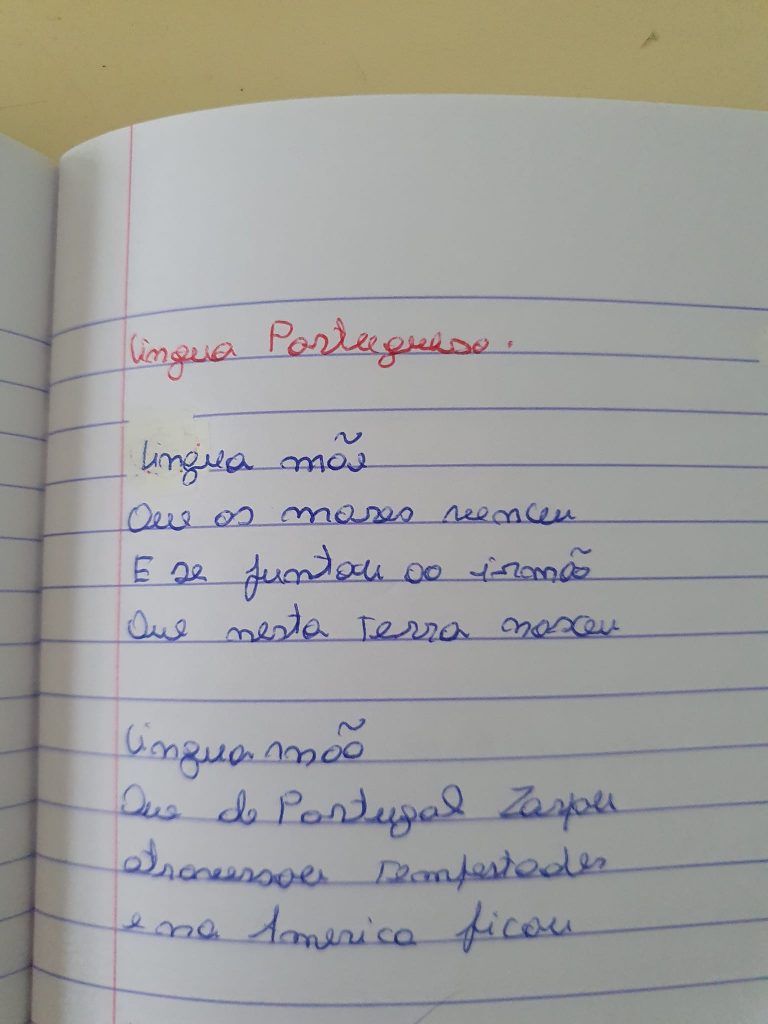 Lingua Portuguesa.
Lingua mãe
Que os mares venceu
E se juntou ao irmão
Que nesta Terra nasceu
Lingua mão
Que de Portugal Zarpou
atravessou Tempestades
e na America ficou